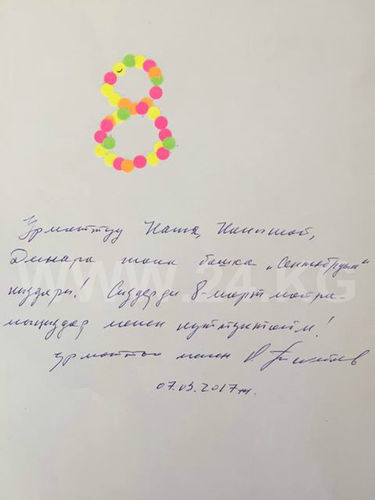 8
Урматтуу Наша, Нонышай,
Динара жана башка „Сентябрдын“
кыздары! Сиздерди 8-март майра-
мыңыздар менен куттуктайм!
урматтоо менен
07.03.2017ж.
WWW.24.KG